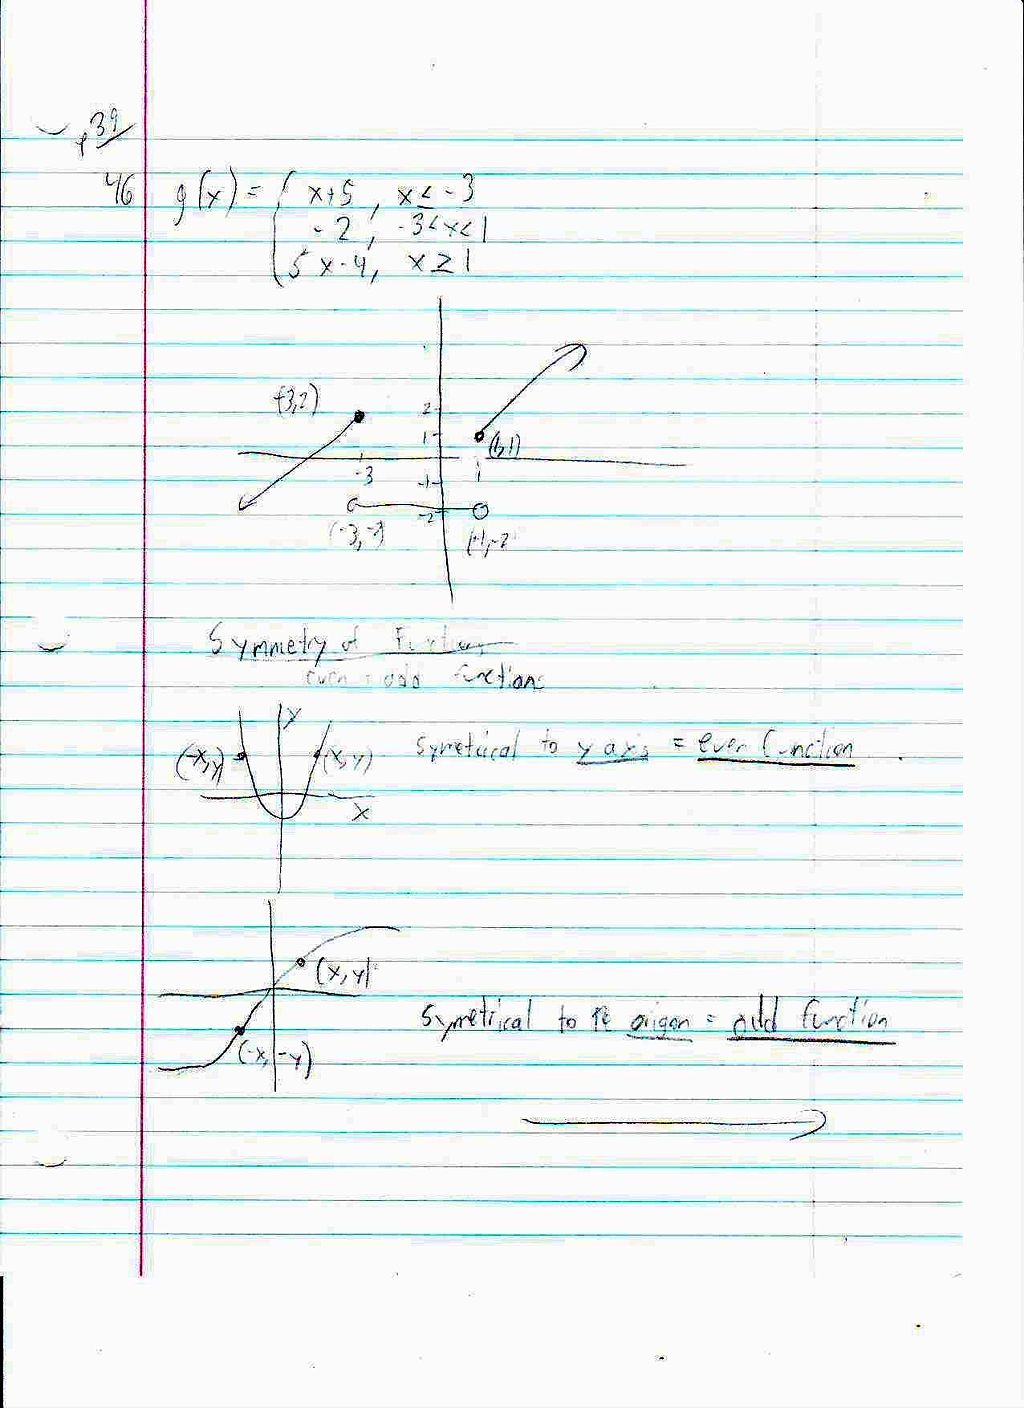 p39
46 g(x) = { x+5, x ≤ -3
-2, -3<x<1
5x-4, x ≥ 1
(-3,2)
2
1
(1,1)
-3
1
-1
-2
(-3,-2)
Symmetry of
odd functions
y
(-x,y)
(x,y)
x
Symetrical to y axis = even function
(x,y)
(-x,-y)
Symetrical to the origon = odd function